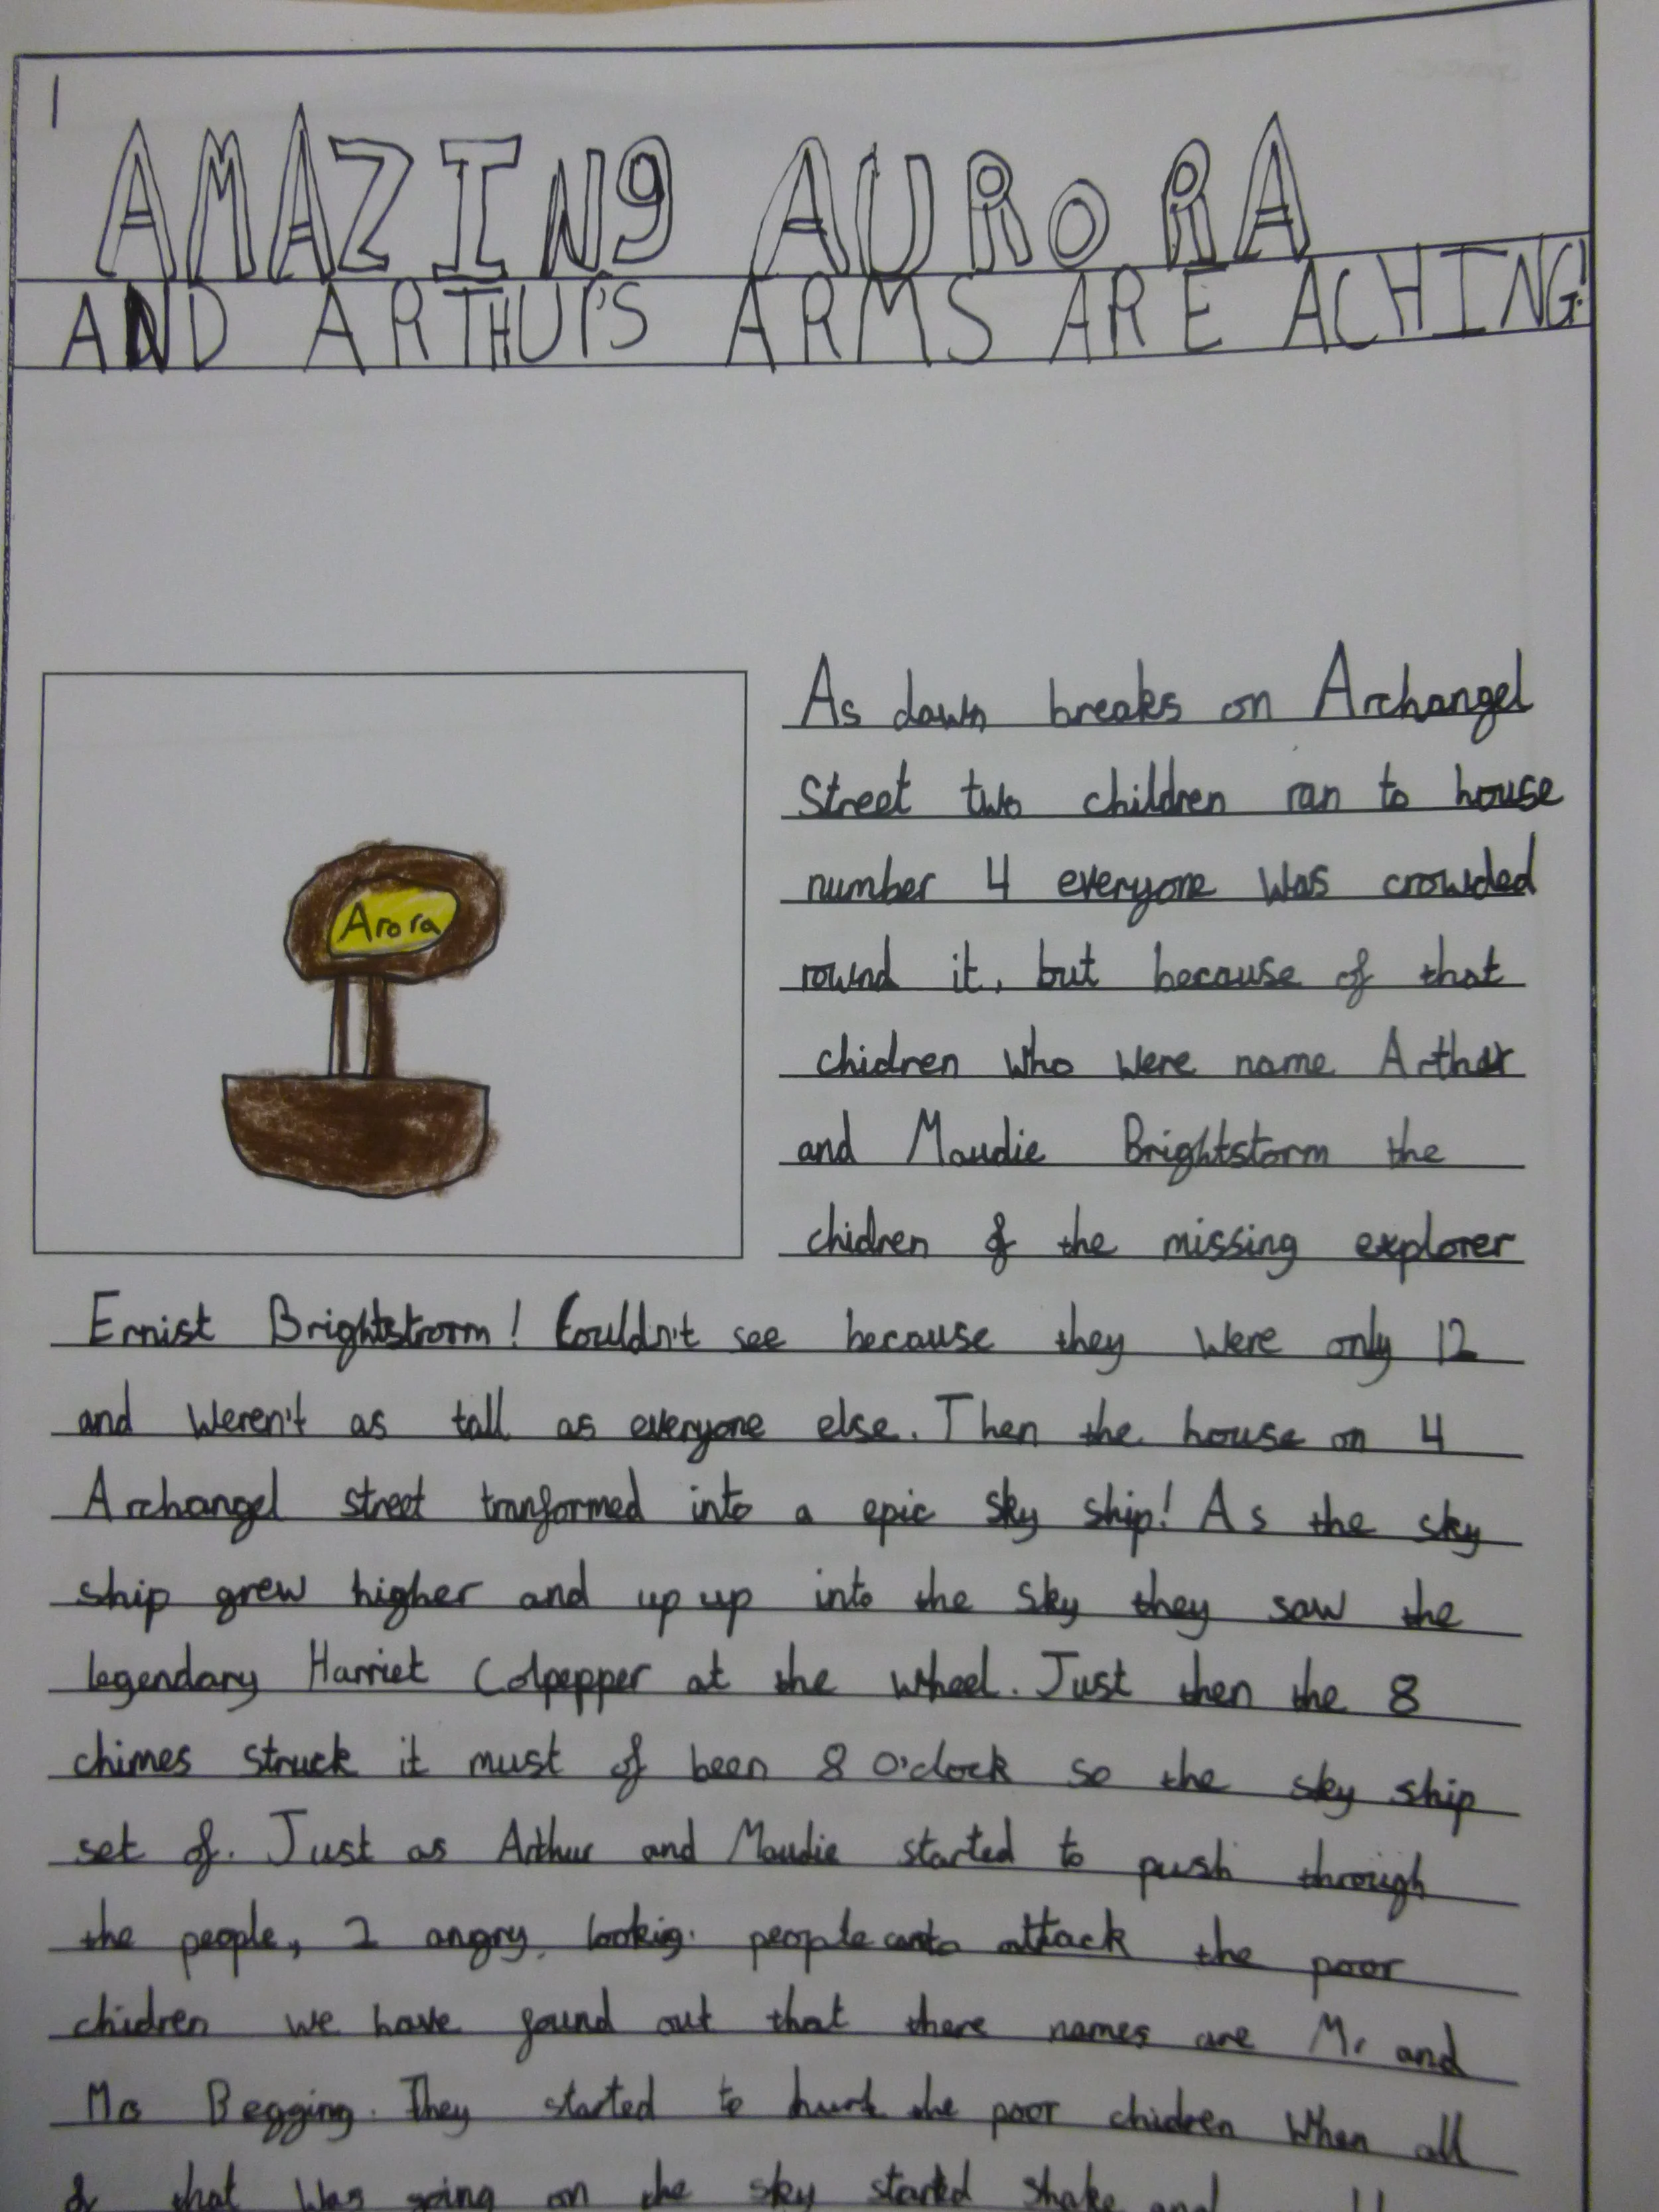 1
AMAZING AURORA
AND ARTHUR'S ARMS ARE ACHING!
Arora
As dawn breaks on Archangel
Street two children ran to house
number 4 everyone was crowded
round it, but because of that
chidren who were name Arthur
and Maudie Brightstorm the
chidren of the missing explorer
Ernist Brightstrorm! Couldn't see because they were only 12
and weren't as tall as everyone else. Then the house on 4
Archangel street tranformed into a epic sky ship! As the sky
ship grew higher and up up into the sky they saw the
legendary Harriet Colpepper at the wheel. Just then the 8
chimes struck it must of been 8 o'clock so the sky ship
set of. Just as Arthur and Maudie started to push through
the people, 2 angry lookig people attack the poor
chidren we have found out that there names are Mr and
Mrs Begging. They started to hurt the poor chidren when all
of that was going on the sky started shake and